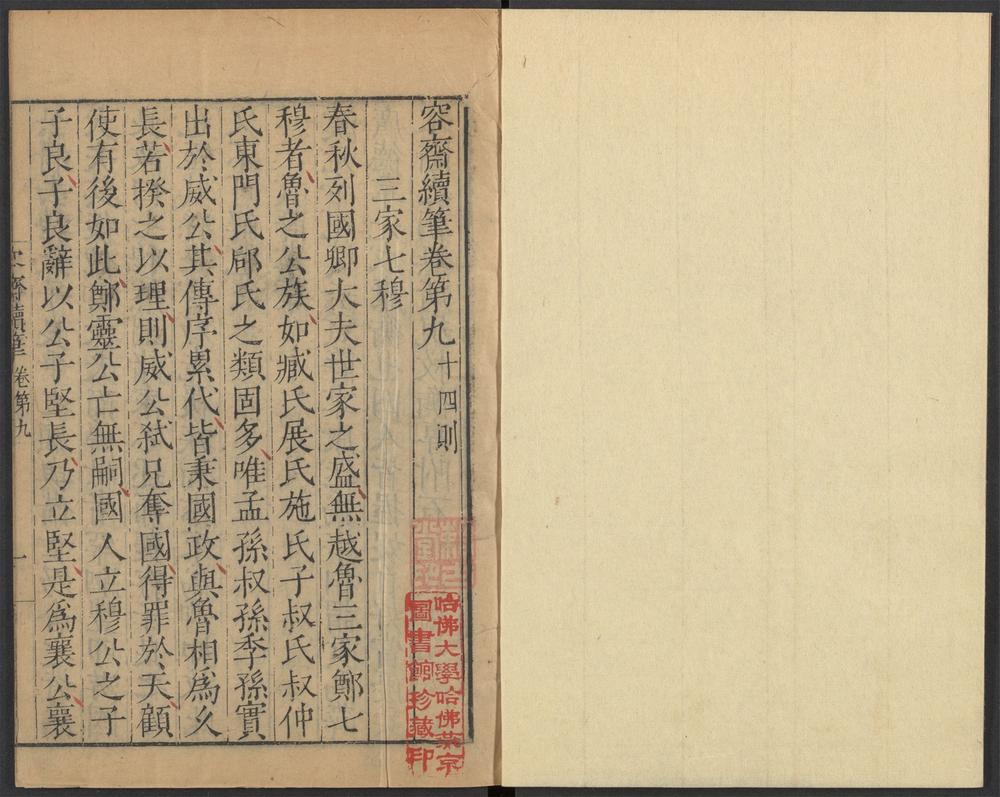 容齋續筆卷第九十四則
三家七穆
春秋列國卿大夫世家之盛無越魯三家鄭七
穆者魯之公族如臧氏展氏施氏子叔氏叔仲
氏東門氏郈氏之類固多唯孟孫叔孫季孫實
出於威公其傳序累代皆秉國政與魯相爲久
長若揆之以理則威公弑兄奪國得罪於天顧
使有後如此鄭靈公亡無嗣國人立穆公之子
子良子良辭以公子堅長乃立堅是爲襄公襄
齋續筆卷第九
一
哈佛大學哈佛燕京
圖書館珍藏印